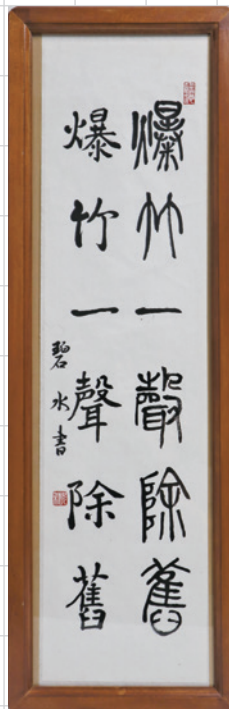 爆竹一聲除舊
爆竹一聲除舊
碧水書